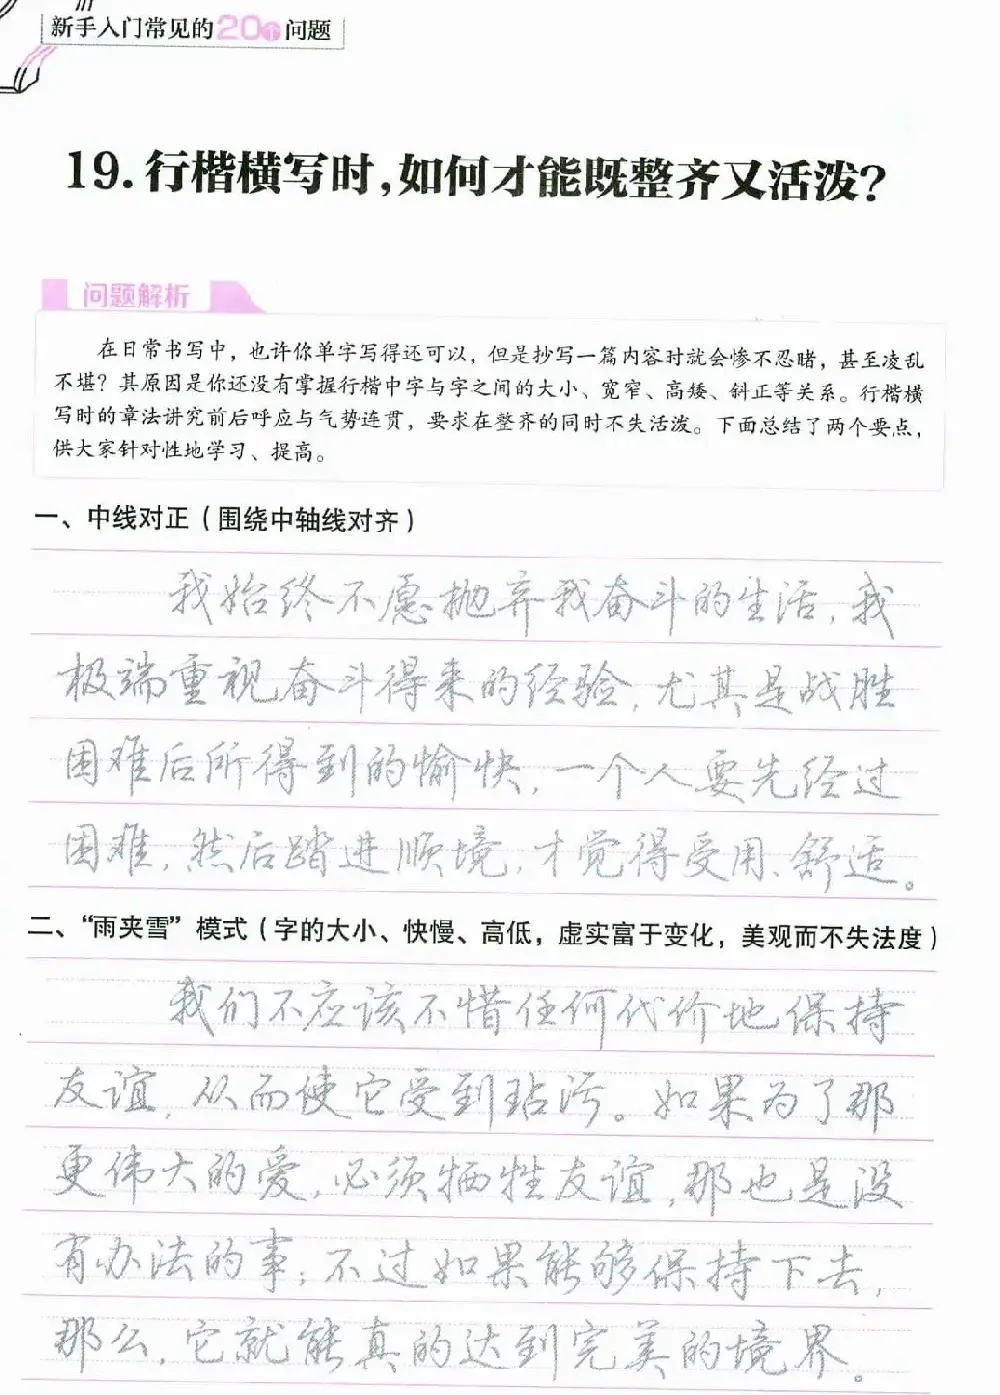 新手入门常见的20个问题
19.行楷横写时,如何才能既整齐又活泼?
问题解析
在日常书写中，也许你单字写得还可以，但是抄写一篇内容时就会惨不忍睹，甚至凌乱
不堪？其原因是你还没有掌握行楷中字与字之间的大小、宽窄、高矮、斜正等关系。行楷横
写时的章法讲究前后呼应与气势连贯，要求在整齐的同时不失活泼。下面总结了两个要点，
供大家针对性地学习、提高。
一、中线对正（围绕中轴线对齐）
我始终不愿抛弃我奋斗的生活,我
极端重视奋斗得来的经验,尤其是战胜
困难后所得到的愉快,一个人要先经过
困难,然后踏进顺境,才觉得受用、舒适。
二、“雨夹雪”模式（字的大小、快慢、高低，虚实富于变化，美观而不失法度）
我们不应该不惜任何代价地保持
友谊,从而使它受到玷污。如果为了那
更伟大的爱,必须牺牲友谊,那也是没
有办法的事;不过如果能够保持下去,
那么,它就能真的达到完美的境界。